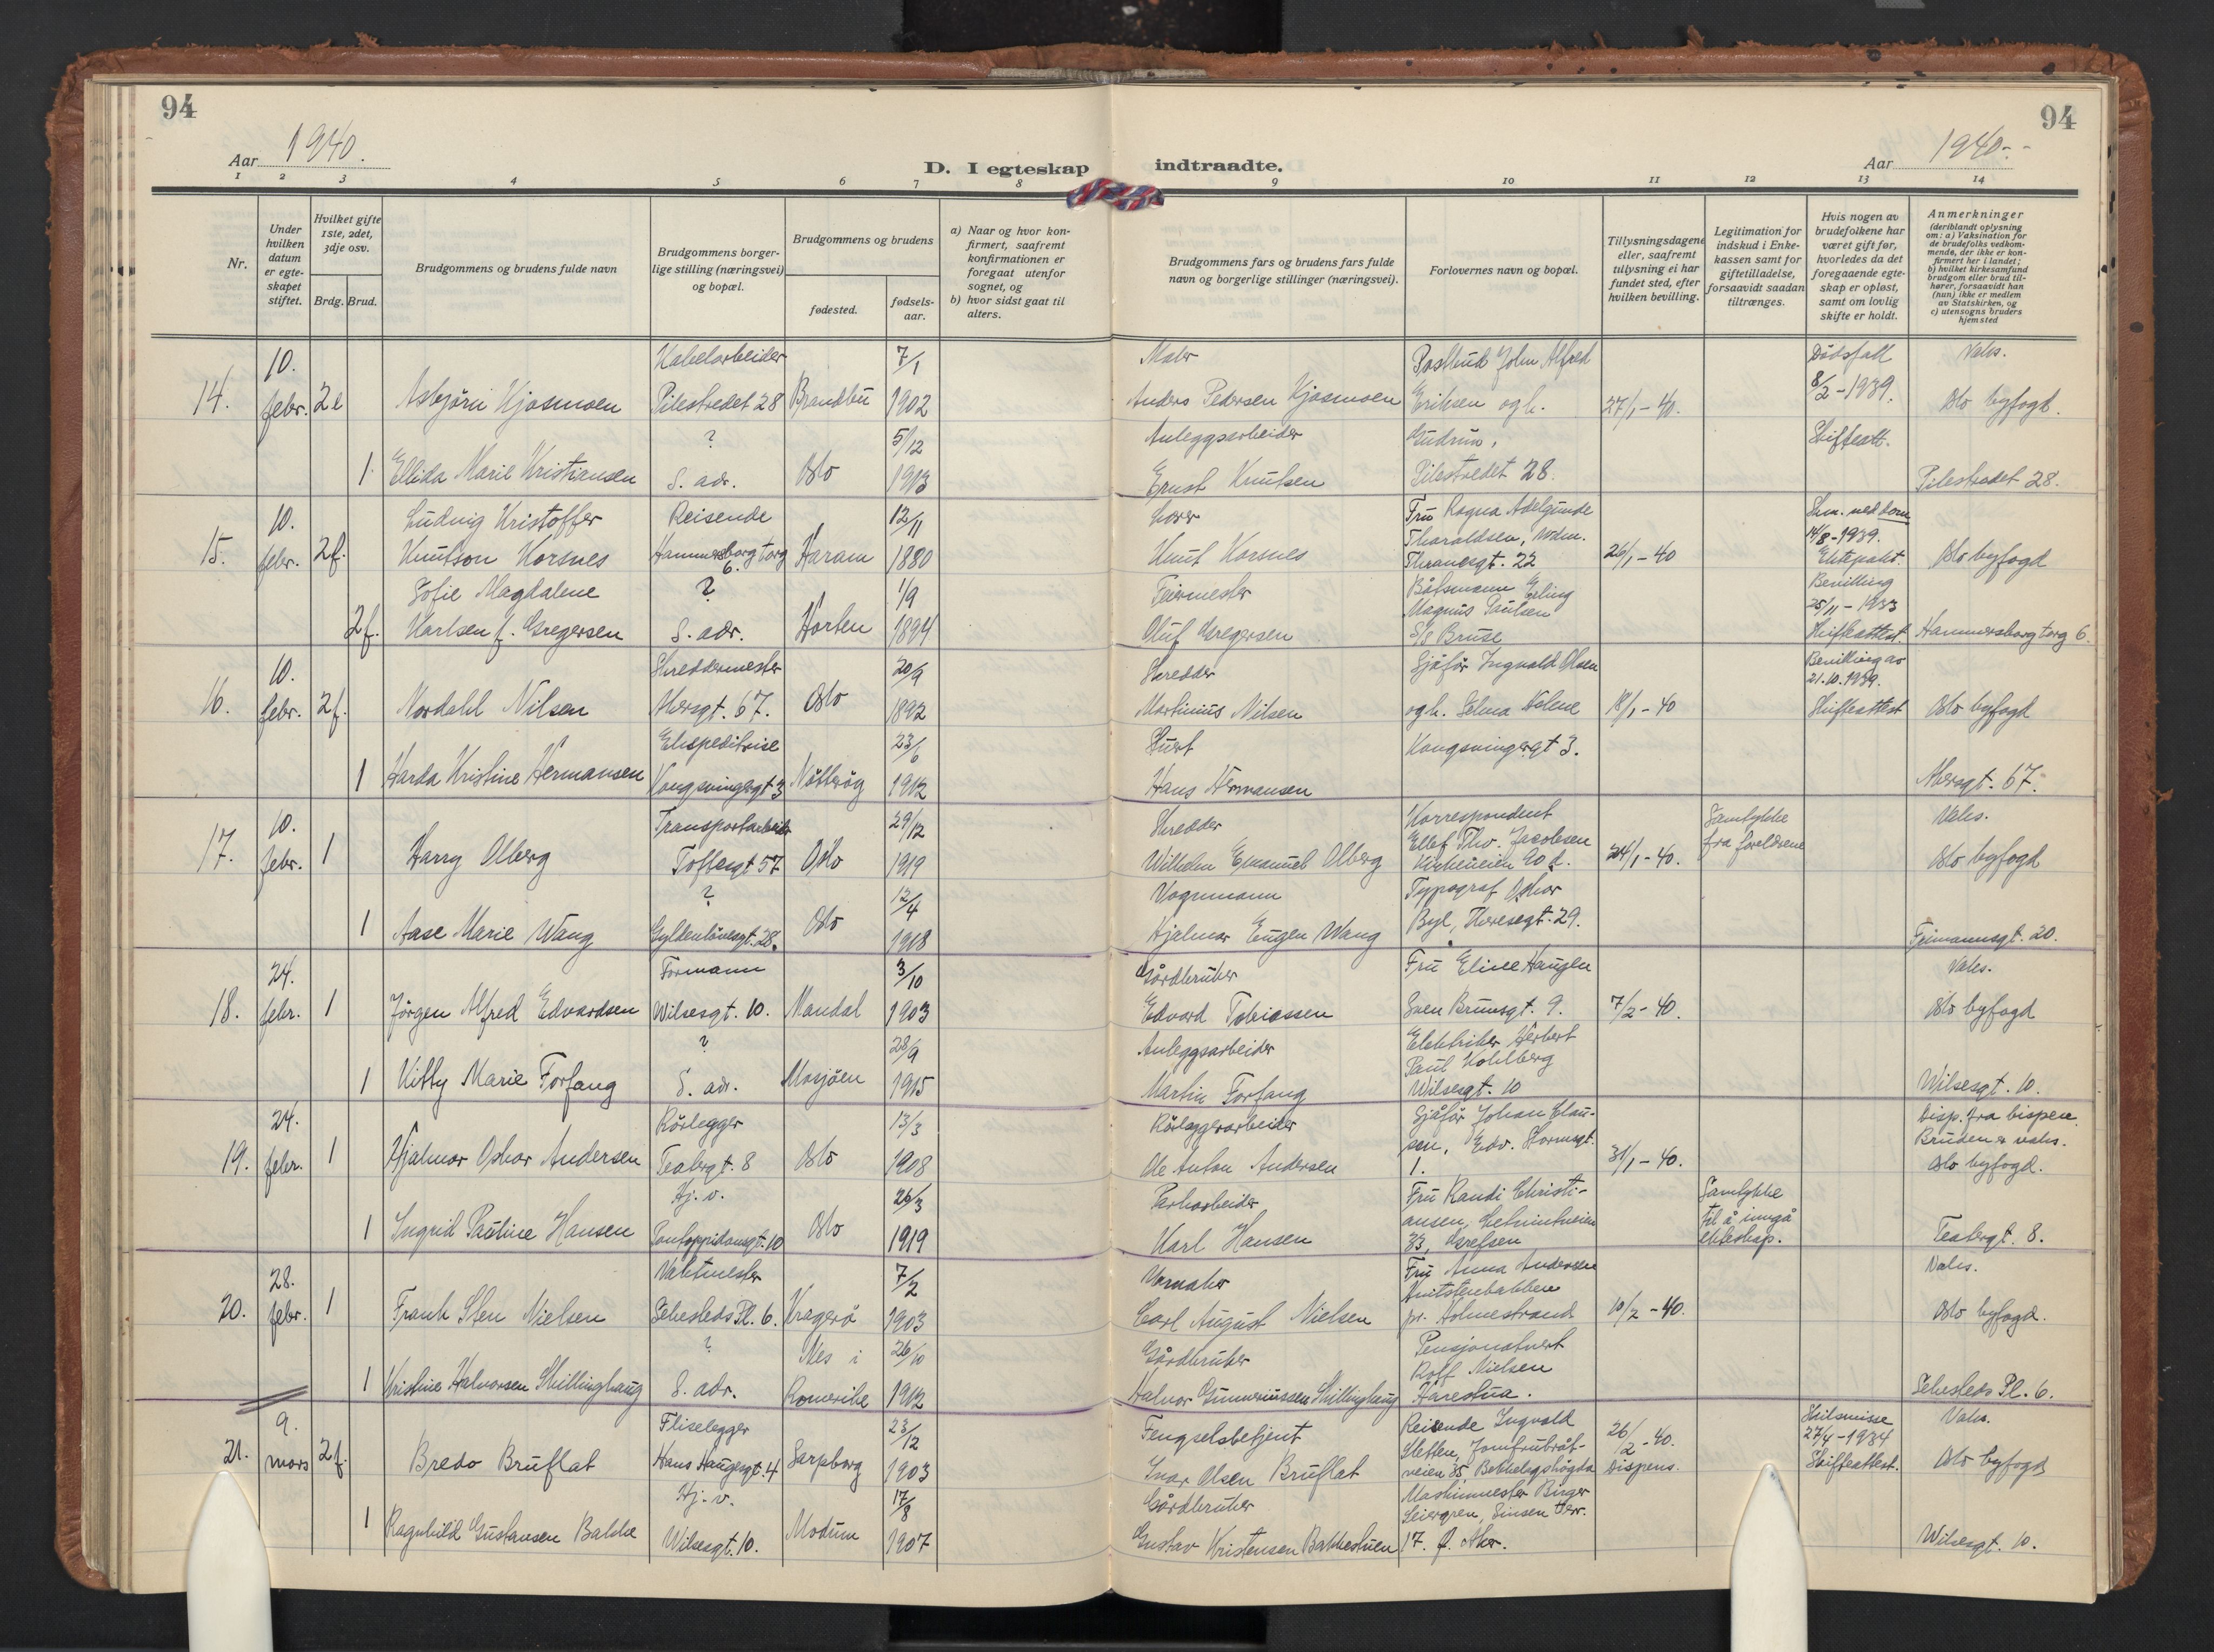 94
94
Aar 1940.
D. I egteskap indtraadte.
Aar 1940.-
1 2 3 4 5 6 7 8 9 10 11 12 13 14
Nr.
Under hvilken datum er egteskapet stiftet.
Hvilket gifte 1ste, 2det, 3dje osv.
Brdg. Brud.
Brudgommens og brudens fulde navn
Brudgommens borgerlige stilling (næringsvei) og bopæl.
Brudgommens og brudens
fødested.
fødselsaar.
a) Naar og hvor konfirmert, saafremt konfirmationen er foregaat utenfor sognet, og
b) hvor sidst gaat til alters.
Brudgommens fars og brudens fars fulde navn og borgerlige stillinger (næringsvei).
Forlovernes navn og bopæl.
Tillysningsdagene eller, saafremt tillysning ei har fundet sted, efter hvilken bevilling.
Legitimation for indskud i Enkekassen samt for giftetilladelse, forsaavidt saadan tiltrænges.
Hvis nogen av brudefolkene har været gift før, hvorledes da det foregaaende egteskap er opløst, samt om lovlig skifte er holdt.
Anmerkninger (deriblandt oplysning om: a) Vaksination for de brudefolks vedkommende, der ikke er konfirmert her i landet; b) hvilket kirkesamfund brudgom eller brud tilhører, forsaavidt han (hun) ikke er medlem av Statskirken, og c) utensogns bruders hjemsted
10. Kabelarbeider 7/1 Maler Postbud John Alfred Dødsfall Vaks.
14. febr. 2e Asbjørn Kjosmoen Pilestredet 28 Brandbu 1902 Anders Pedersen Kjosmoen Eriksen og h. 27/1-40. 8/2-1939. Oslo byfogd.
? 5/12 Anleggsarbeider Gudrun, Skifteatt.
1. Ellida Marie Kristiansen S. adr. Oslo 1913 Ernst Knutsen Pilestredet 28. Pilestredet 28.
10. Ludvig Kristoffer Reisende 12/11 Fru Ragna Adelgunde Skm. ved dom
15. febr. 2f. Knutson Korsnes Hammersborg torg 6. Haram 1880 Knut Korsnes Thoraldsen, Thranesgt. 22 26/1-40 14/8-1939. Ektepakt. Oslo byfogd
Sofie Magdalene ? 1/9 Feiermester Båtsmann Erling Bevilling
2f. Karlsen f. Gregersen S. adr. Horten 1894 Oluf Gregersen Magnus Paulsen S/S Bruse 25/11-1933 Skifteattest. Hammersborg torg 6.
10. Skreddermester 20/9 Skredder Sjåfør Ingvald Olsen Bevilling av 21.10.1939.
16. febr. 2f. Nordahl Nilsen Akersgt. 67. Oslo 1892 Martinius Nilsen og h. Selma Helene 18/1-40 Skifteattest Oslo byfogd
Ekspeditrise 23/6 Stuert Kongsvingergt 3.
1 Harda Kristine Hermansen Kongsvingergt 3 Nøtterøy 1912 Hans Hermansen Akersgt. 67.
10. Transportarbeider 29/12 Skredder Korrespondent Samtykke Vaks.
17. febr. 1 Harry Olberg Toftesgt 57 Oslo 1919 Wilhelm Emanuel Olberg Ellef Thv. Jacobsen Kirkeveien 90 d. 24/1-40. fra foreldrene Oslo byfogd
? 12/4 Vognmann Typograf Oskar
1 Aase Marie Wang Gyldenløvesgt. 28. Oslo 1918 Hjalmar Eugen Wang Bye, Theresegt. 29. Frimannsgt. 20.
24. Formann 3/10 Gårdbruker Fru Eline Haugen Vaks.
18. febr. 1 Jørgen Alfred Edvardsen Wilsesgt. 10. Mandal 1903 Edvard Tobiassen Sven Brunsgt. 9. 7/2-40. Oslo byfogd
? 28/9 Anleggsarbeider Elektriker Herbert
1 Kitty Marie Forfang S. adr. Mosjøen 1915 Martin Forfang Paul Kohlberg Wilsesgt. 10 Wilsesgt. 10.
24. Rørlegger 13/3 Rørleggerarbeider Sjåfør Johan Clau- Disp. fra bispen. Bruden er vaks.
19. febr. 1 Hjalmar Oskar Andersen Teatergt. 8 Oslo 1908 Ole Anton Andersen sen, Edv. Stormsgt. 1. 31/1-40. Oslo byfogd.
Hj. v. 26/3 Parkarbeider Fru Randi Christi- Samtykke
1 Ingrid Pauline Hansen Pontoppidansgt. 10 Oslo 1919 Karl Hansen ansen, 33, Grefsen til å inngå ekteskap. Teatergt. 8.
28. Vaktmester 7/2 Fru Anna Andersen Vaks.
20. febr. 1 Frank Sten Nielsen Sehesteds Pl. 6. Kragerø 1903 Carl August Nielsen pr. Holmestrand 10/2-40. Oslo byfogd.
? Nes i 26/10 Gårdbruker Pensjonatvert
1 Kristine Halvorsen Skillinghaug S. adr. Romerike 1912 Halvor Gunneriussen Skillinghaug Rolf Nielsen Harestua. Sehesteds Pl. 6.
9. Fliselegger 23/12 Fengselsbetjent Reisende Ingvald 26/2-40. Skilsmisse Vaks.
21. mars 2f. Bredo Bruflat Hans Haugesgt. 4 Sarpsborg 1903 Ivar Olsen Bruflat Sletten, Jomfrubråtveien 35, Bekkelagshøgda Dispens. 27/4-1934 Skifteattest. Oslo byfogd
Hj. v. 17/8 Gårdbruker Maskinmester Birger
1 Ragnhild Gustavsen Bakke Wilsesgt. 10. Modum 1907 Gustav Kristensen Bakkestuen Seiergren, Sinsen Terr. 17. Ø. Aker. Wilsesgt. 10.